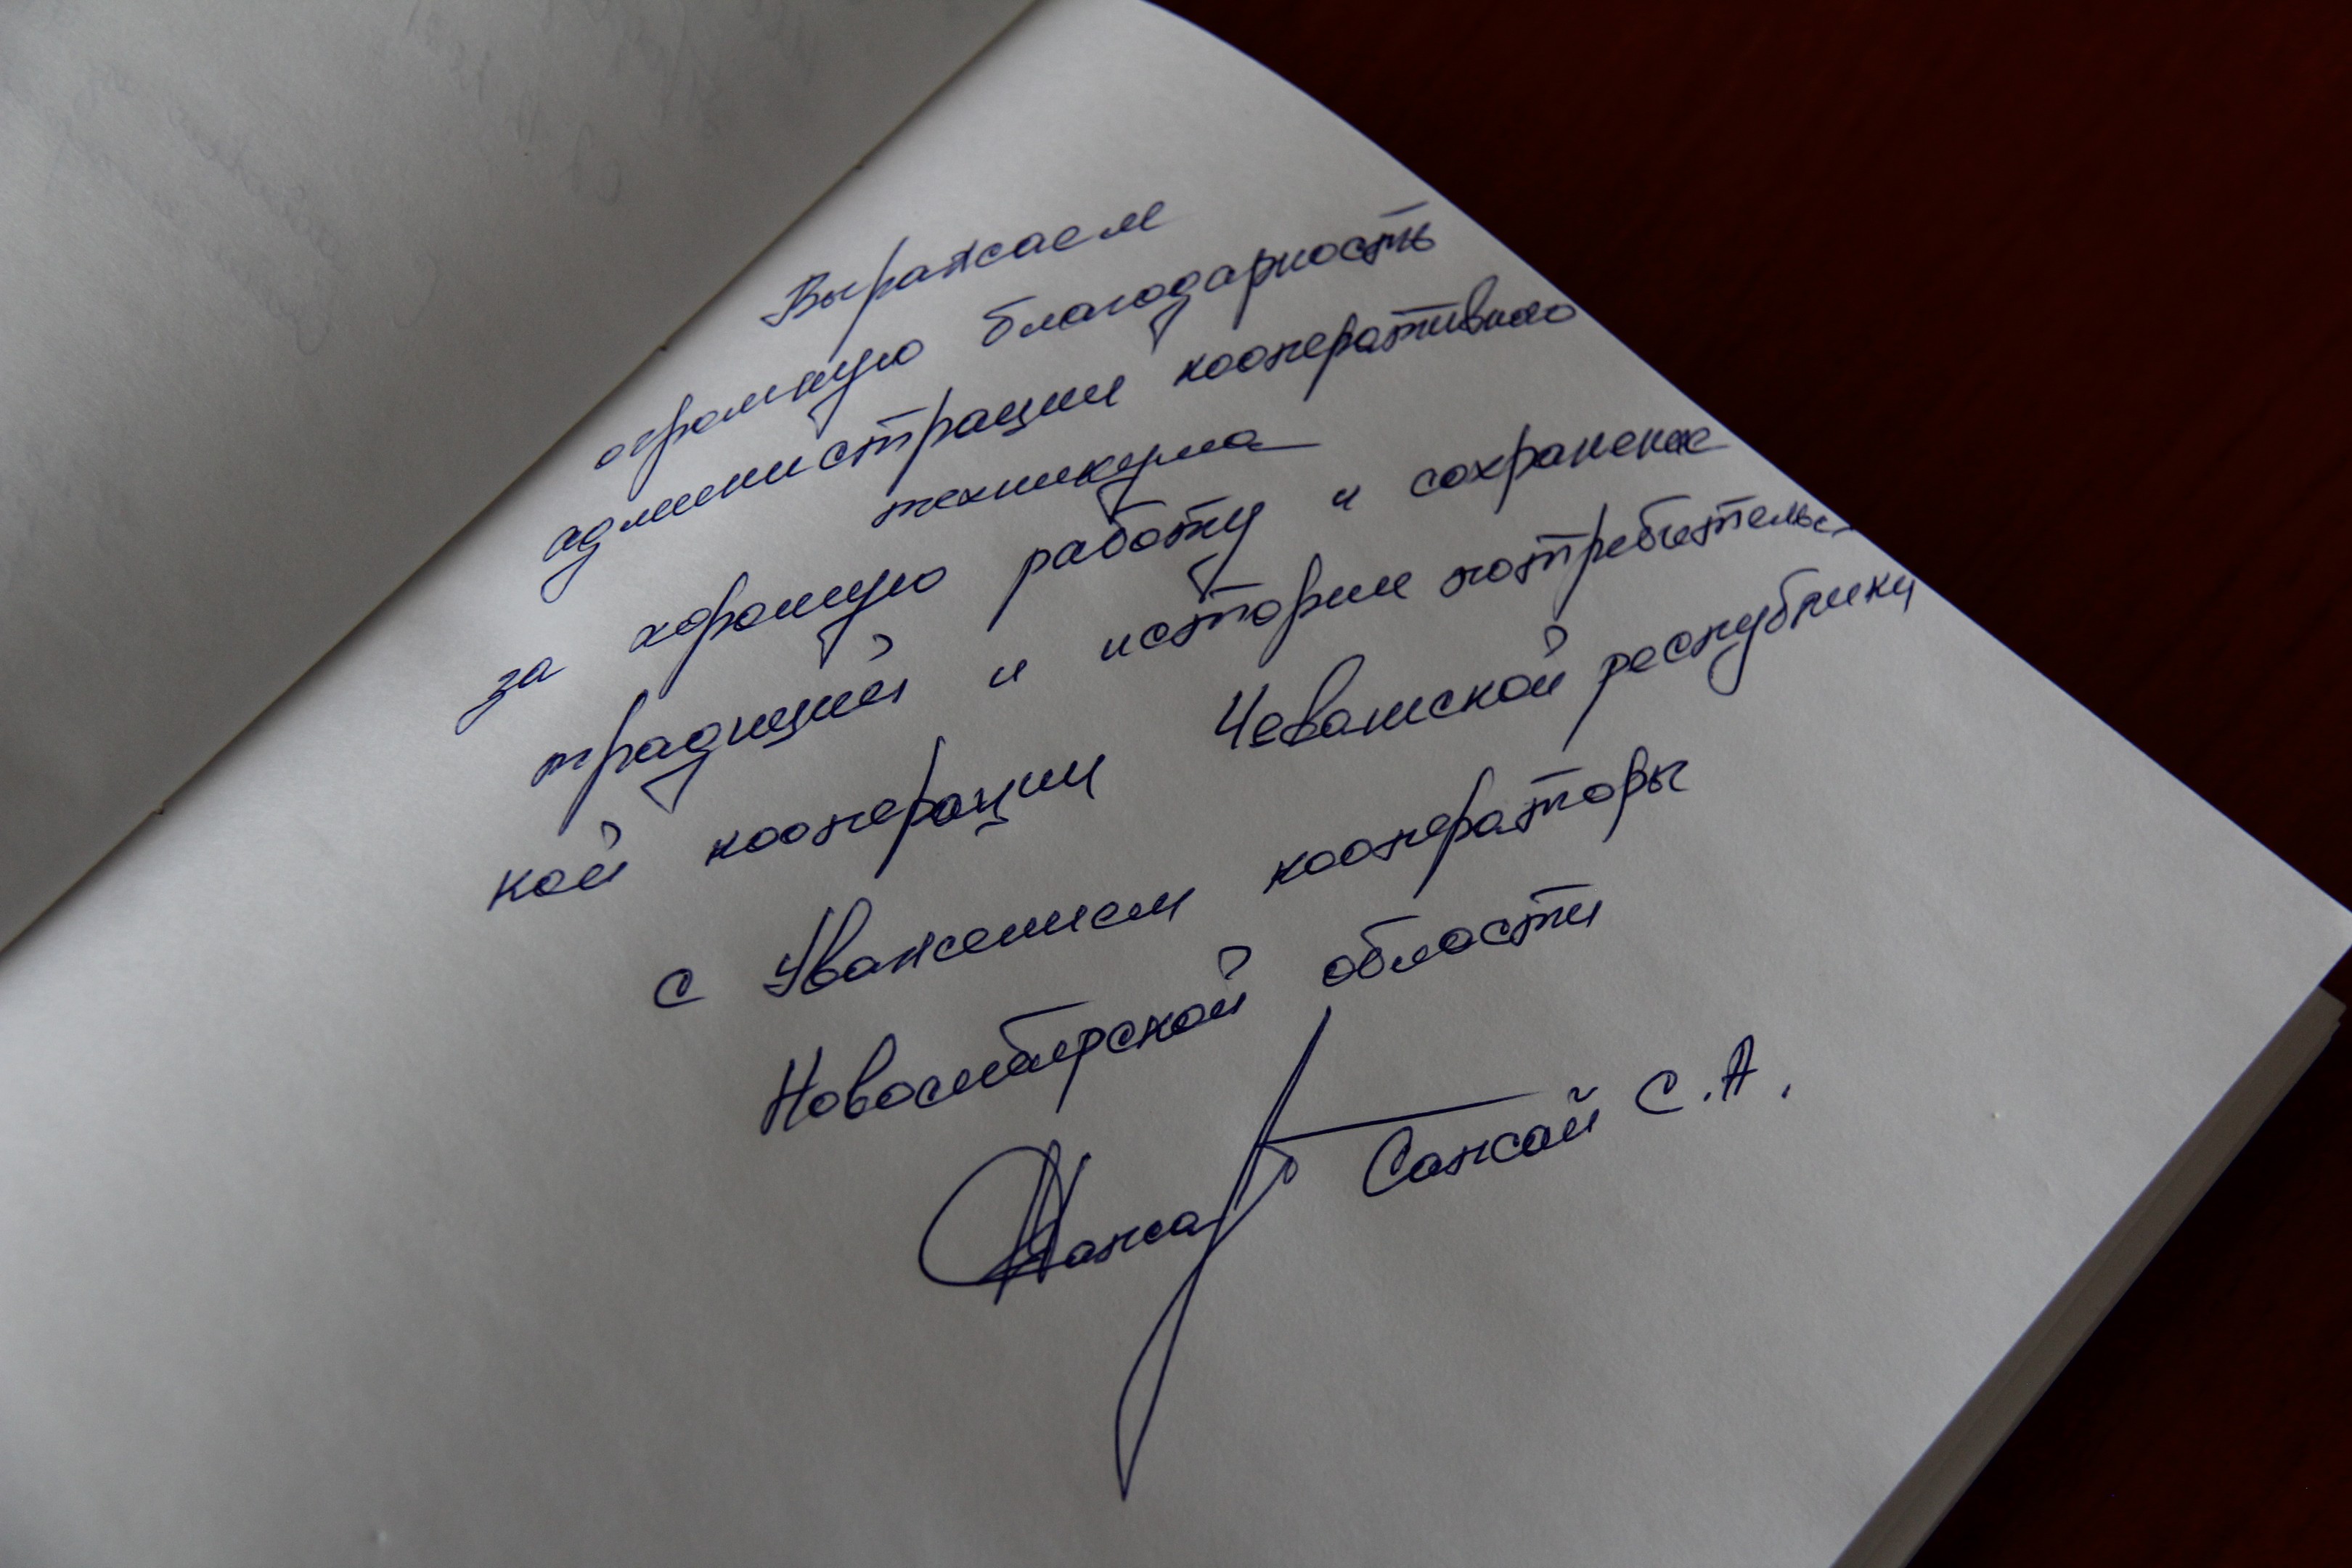 Выражаем
огромную благодарность
администрации кооперативного
техникума
за хорошую работу и сохранение
традиций и истории потребительс-
кой кооперации Чевашской республики
с Уважением кооператоры
Новосибирской области
Санжай С.А.